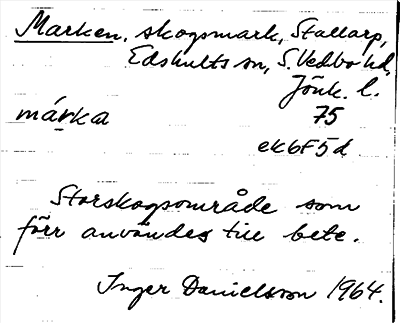 Marken, skogsmark, Stallarp,
Edshults sn, S. Vedbo hd,
Jönk. l.
márka 75
ek6F5d
Storskogsområde som
förr användes till bete.
Inger Danielsson 1964.